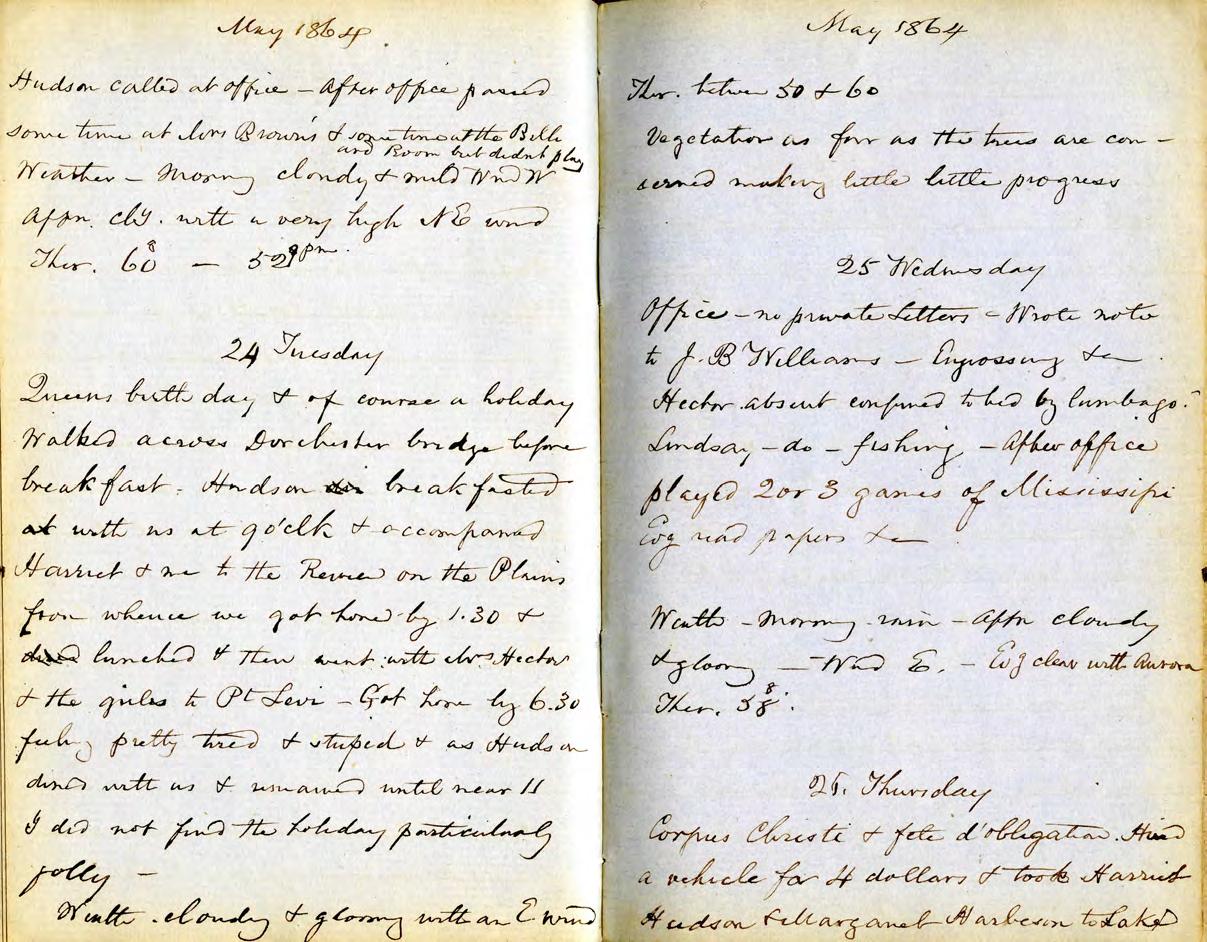 May 1864
Hudson called at office – After office passed
some time at Mrs Brown's & some time at the Bill
and Room but didnt play
Weather – Morng cloudy & mild Wnd W
Aftn. cly. with a very high NE wind
Ther. 60 8 – 52 9 pm.
24 Tuesday
Queens birth day & of course a holiday
Walked across Dorchester bridge before
breakfast. Hudson breakfasted
at with us at 9 o'clk & accompanied
Harriet & me to the Review on the Plains
from whence we got home by 1.30 &
dined lunched & then went with Mrs Hector
& the girles to Pt Levi – Got home by 6.30
feeling pretty tired & stupid & as Hudson
dined with us & remained until near 11
I did not find the holiday particularly
jolly –
Weath. cloudy & gloomy with an E. wind
May 1864
Ther. betwen 50 & 60
Vegetation as far as the trees are con-
cerned making little little progress
25 Wednesday
Office – no private letters – Wrote note
to J. B Williams – Engrossing &c
Hector absent confined to bed by lumbago.
Lindsay – do – fishing – After office
played 2 or 3 games of Mississipi
Evg read papers &c
Weath – Morng rain – Aftn cloudy
& gloomy – Wnd E. – Evg clear with Aurora
Ther. 58 8.
26. Thursday
Corpus Christi & fete d'obligation. Hired
a vehicle for 4 dollars & took Harriet
Hudson & Margaret Harbeson to Lake